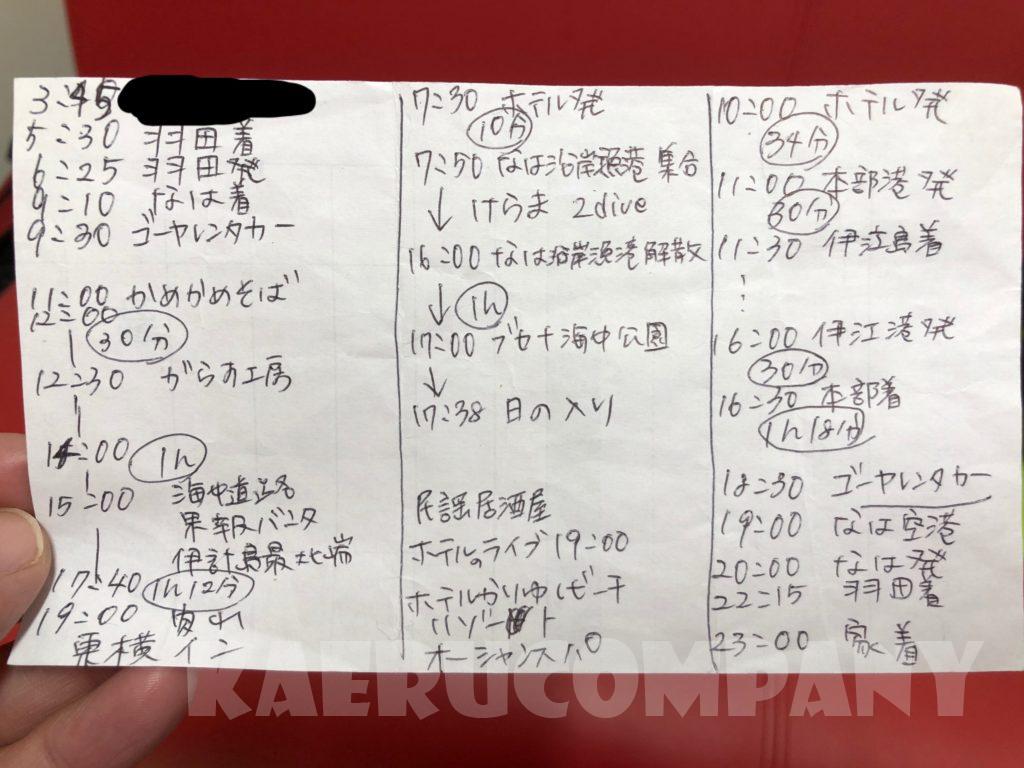 3:45
5:30 羽田着
6:25 羽田発
9:10 なは着
9:30 ゴーヤレンタカー
11:00 かめかめそば
12:00
30分
12:30 がらす工房
14:00 1h
15:00 海中道路
果報バンタ
伊計島最北端
17:40 1h12分
19:00
東横イン
7:30 ホテル発
10分
7:50 なは沿岸漁港 集合
↓ けらま 2dive
16:00 なは沿岸漁港解散
↓ 1h
17:00 ブセナ海中公園
↓
17:38 日の入り
民謡居酒屋
ホテルのライブ19:00
ホテルかりゆしビーチ
リゾート
オーシャンスパ
10:00 ホテル発
34分
11:00 本部港発
30分
11:30 伊江島着
16:00 伊江港発
30分
16:30 本部着
1h18分
18:30 ゴーヤレンタカー
19:00 なは空港
20:00 なは発
22:15 羽田着
23:00 家着
KAERUCOMPANY